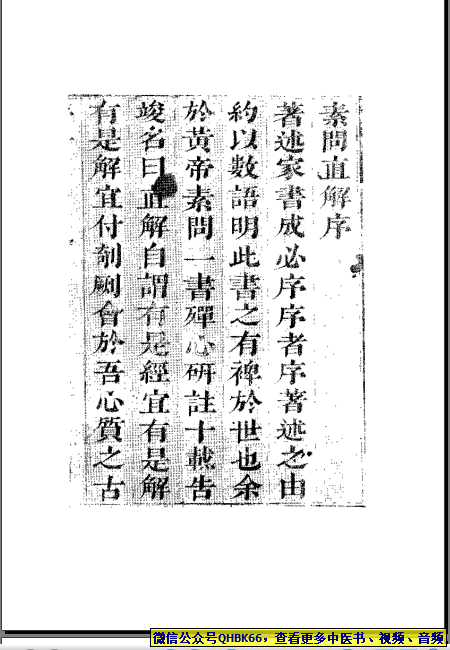 素問直解序
著述家書成必序序者序著述之由
約以數語明此書之有裨於世也余
於黃帝素問一書殫心研註十載告
竣名曰直解自謂有是經宜有是解
有是解宜付剞劂會於吾心質之古
微信公众号QHBK66，查看更多中医书、视频、音频